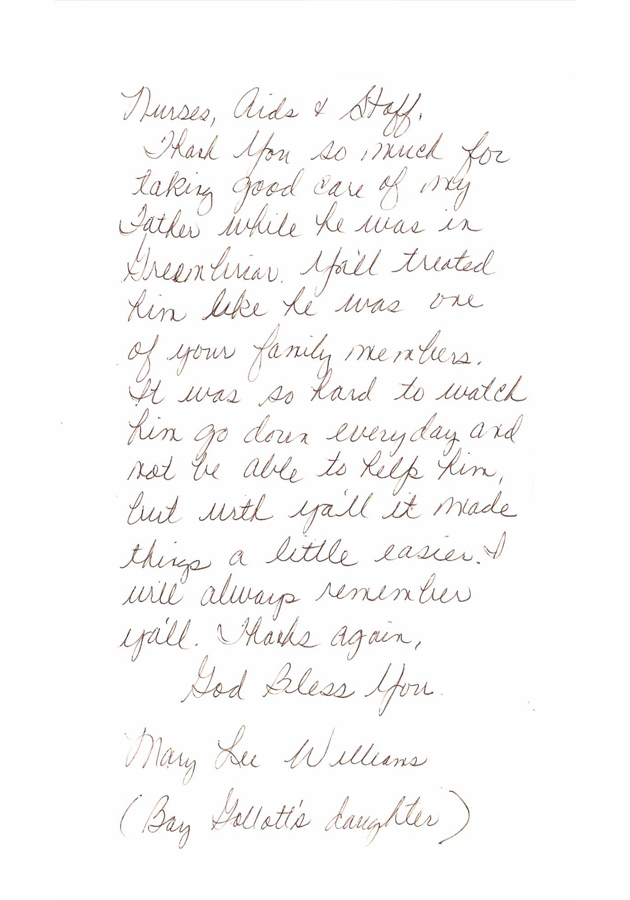 Nurses, Aids & Staff,
Thank You so much for
taking good care of my
Father while he was in
Greenbriar. Ya'll treated
him like he was one
of your family members.
It was so hard to watch
him go down everyday and
not be able to help him,
but with ya'll it made
things a little easier. I
will always remember
ya'll. Thanks again,
God Bless You.
Mary Lee Williams
(Bay Gollott's daughter)